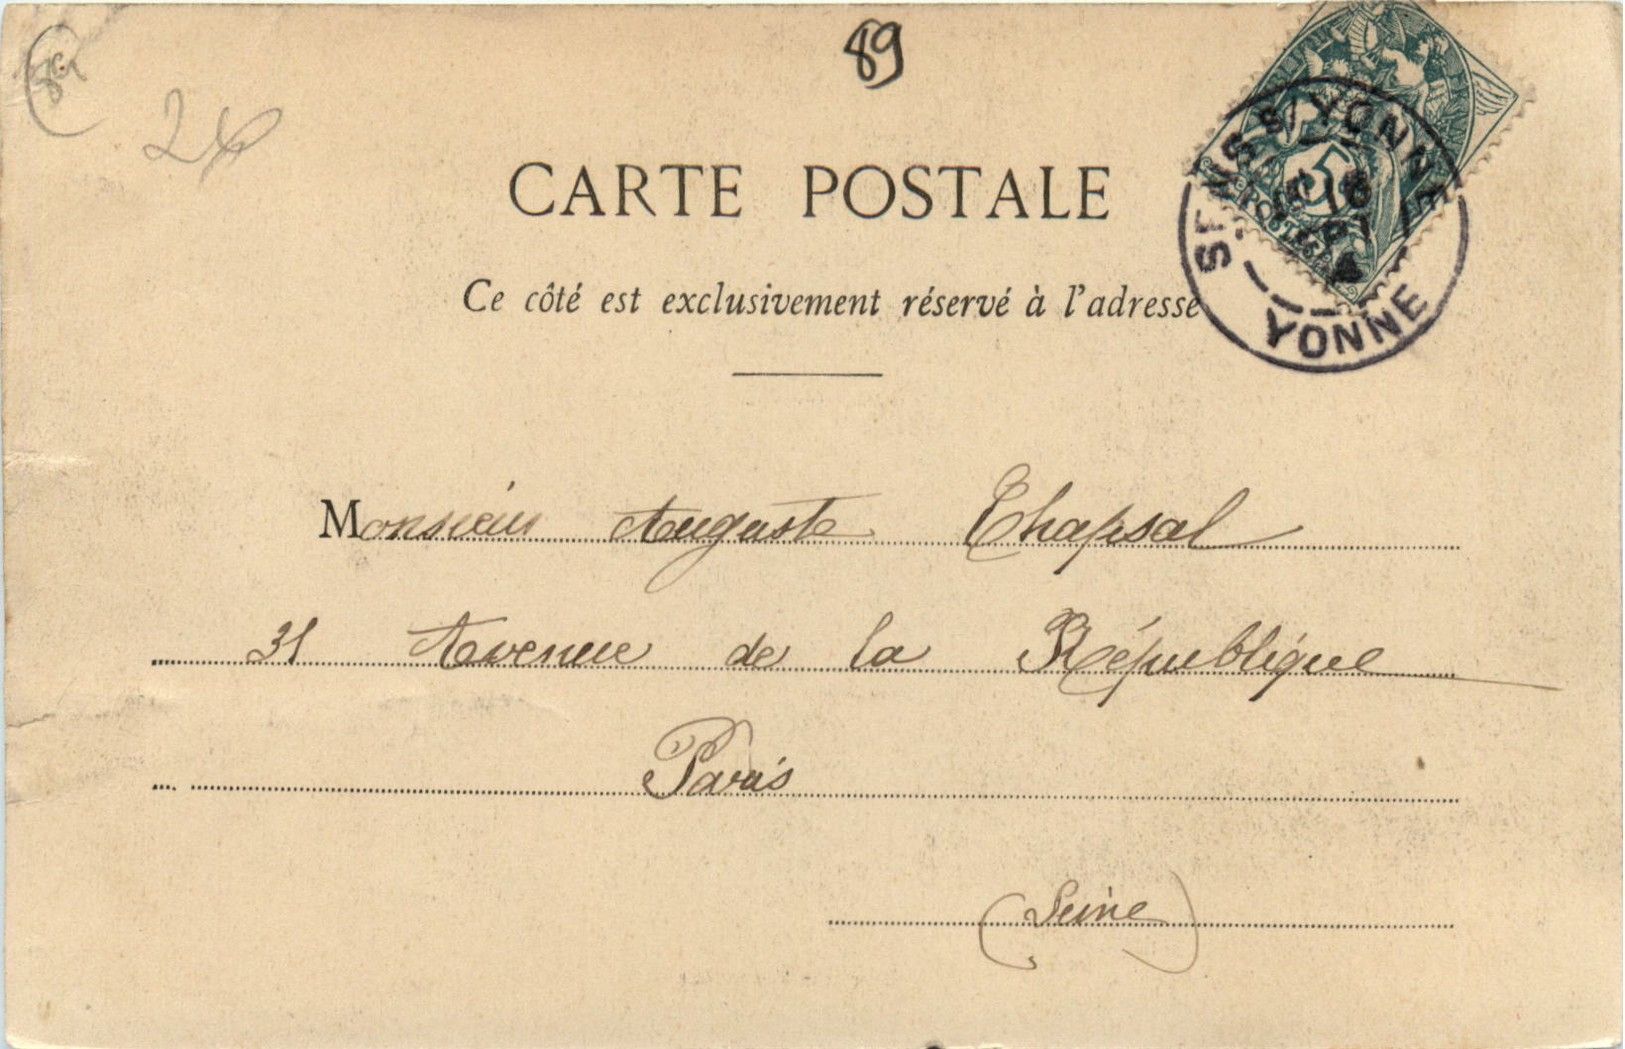 89
26
CARTE POSTALE
Ce côté est exclusivement réservé à l'adresse
5
POSTES
16
4
YONNE
Monsieur Auguste Chapsal
31 Avenue de la République
Paris
(Seine)